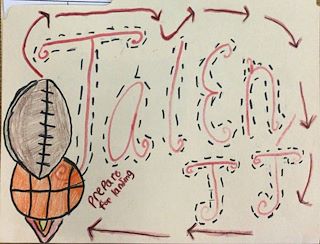 Jalen
JJ
prepare
for landing